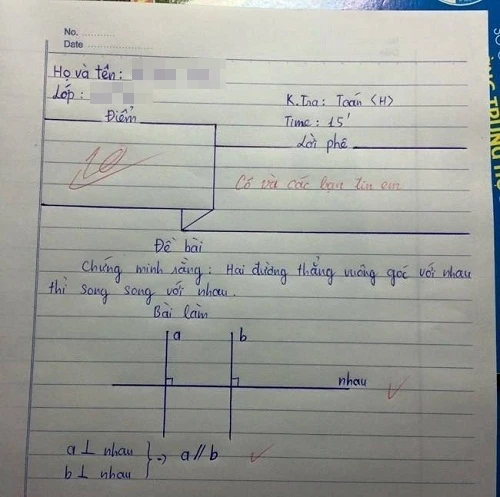 No.
Date
Họ và tên:
Lớp:
K.Tra: Toán <H>
Time: 15'
Điểm
Lời phê
10
Cô và các bạn tin em
Đề bài
Chứng minh rằng: Hai đường thẳng vuông góc với nhau
thì song song với nhau.
Bài làm
a
b
nhau
a ⊥ nhau
b ⊥ nhau
=> a // b